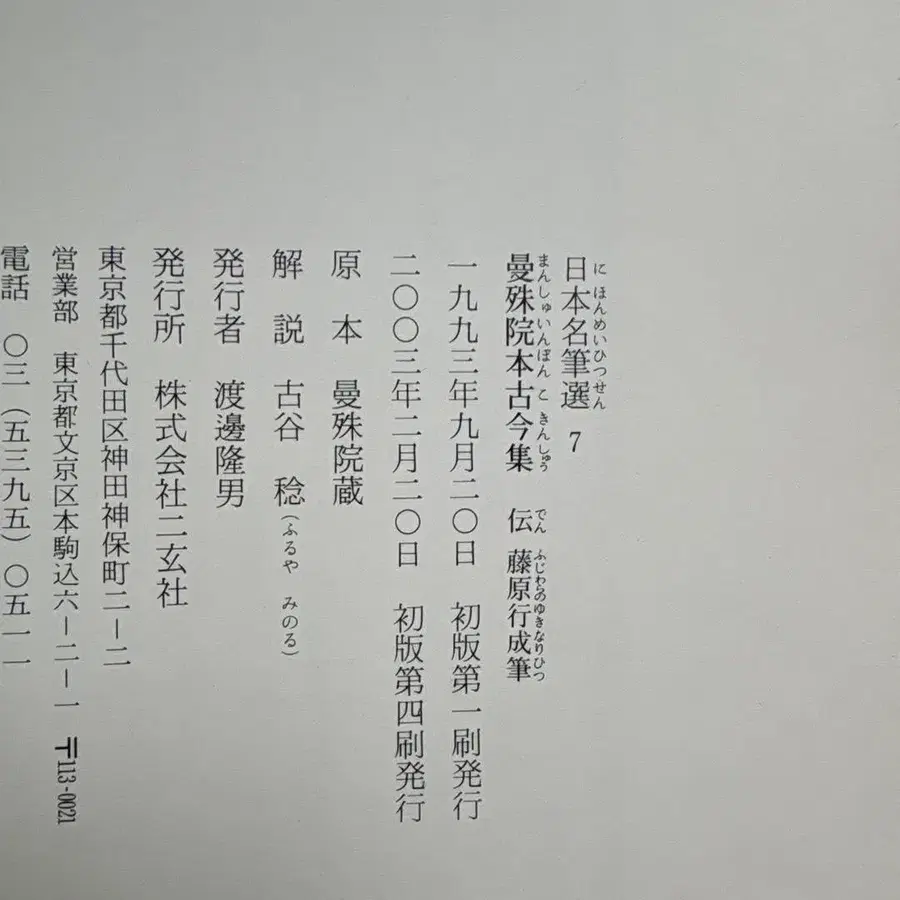 日本名筆選 7
にほんめいひつせん
曼殊院本古今集 伝 藤原行成筆
まんしゅいんぼん こ きんしゅう でん ふじわらのゆきなりひつ
一九九三年九月二〇日 初版第一刷発行
二〇〇三年二月二〇日 初版第四刷発行
原 本 曼殊院蔵
解 説 古谷 稔(ふるや みのる)
発行者 渡邊隆男
発行所 株式会社二玄社
東京都千代田区神田神保町二−二
営業部 東京都文京区本駒込六−二−一 〒113-0021
電話 〇三(五三九五)〇五一一